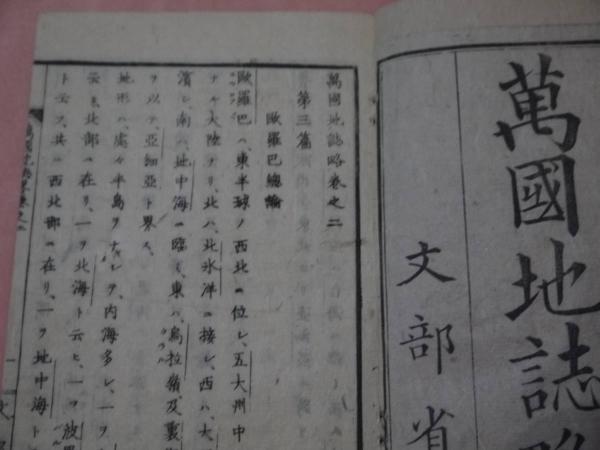 萬國地誌略
文部省
萬國地誌略卷之二
第三篇
歐羅巴總論
歐羅巴ハ、東半球ノ西北ニ位シ、五大州中
ナル大陸ナリ、北ハ、北氷洋ニ接シ、西ハ、大
濱シ、南ハ、地中海ニ臨ミ、東ハ、烏拉嶺、及裏
ヲ以テ、亞細亞ト界ス、
地形ハ、處々半島ヲナシテ、内海多シ、一ヲ
云ヒ、北部ニ在リ、一ヲ北海ト云ヒ、一ヲ波
ト云フ、共ニ西北部ニ在リ、一ヲ地中海ト